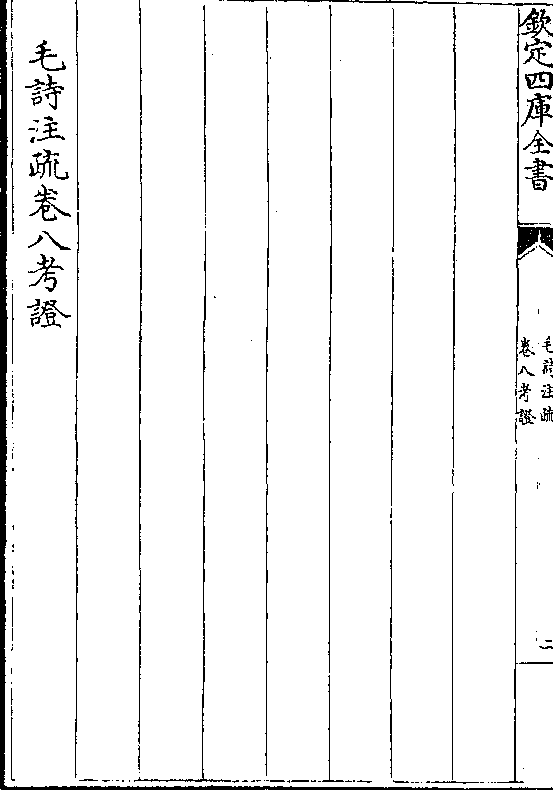 欽定四庫全書
毛詩注疏
卷八考證
二
毛詩注疏卷八考證